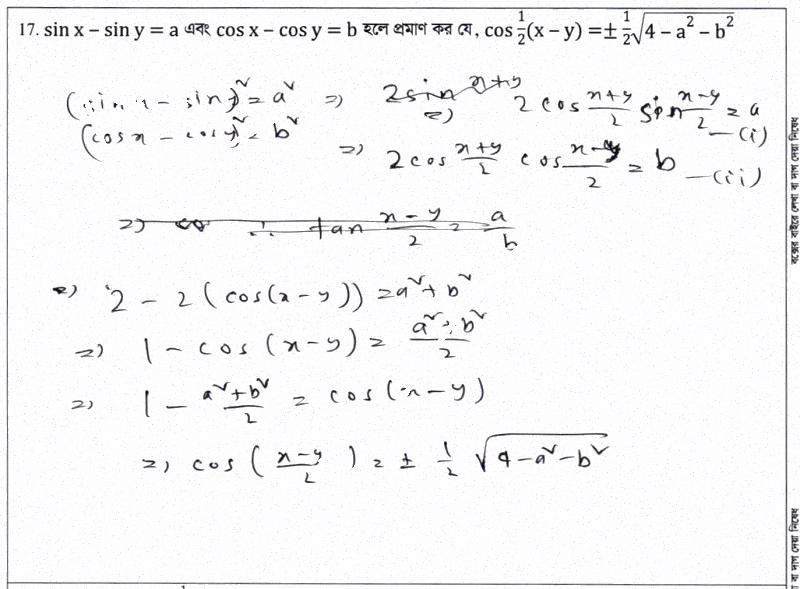 17. sin x – sin y = a এবং cos x – cos y = b হলে প্রমাণ কর যে, cos ½(x – y) = ± ½√(4 – a² – b²)
(sin x – sin y)² = a² ⇒ 2sin (x+y)
⇒ 2 cos (x+y)/2 sin (x–y)/2 = a —(i)
(cos x – cos y)² = b²
⇒ 2 cos (x+y)/2 cos (x–y)/2 = b —(ii)
⇒ co ∴ tan (x–y)/2 = a/b
⇒ 2 – 2 (cos(x – y)) = a² + b²
⇒ 1 – cos (x – y) = (a² + b²)/2
⇒ 1 – (a² + b²)/2 = cos (x – y)
⇒ cos ((x–y)/2) = ± ½ √(4 – a² – b²)
বক্সের বাইরে লেখা বা দাগ দেয়া নিষেধ
বা দাগ দেয়া নিষেধ